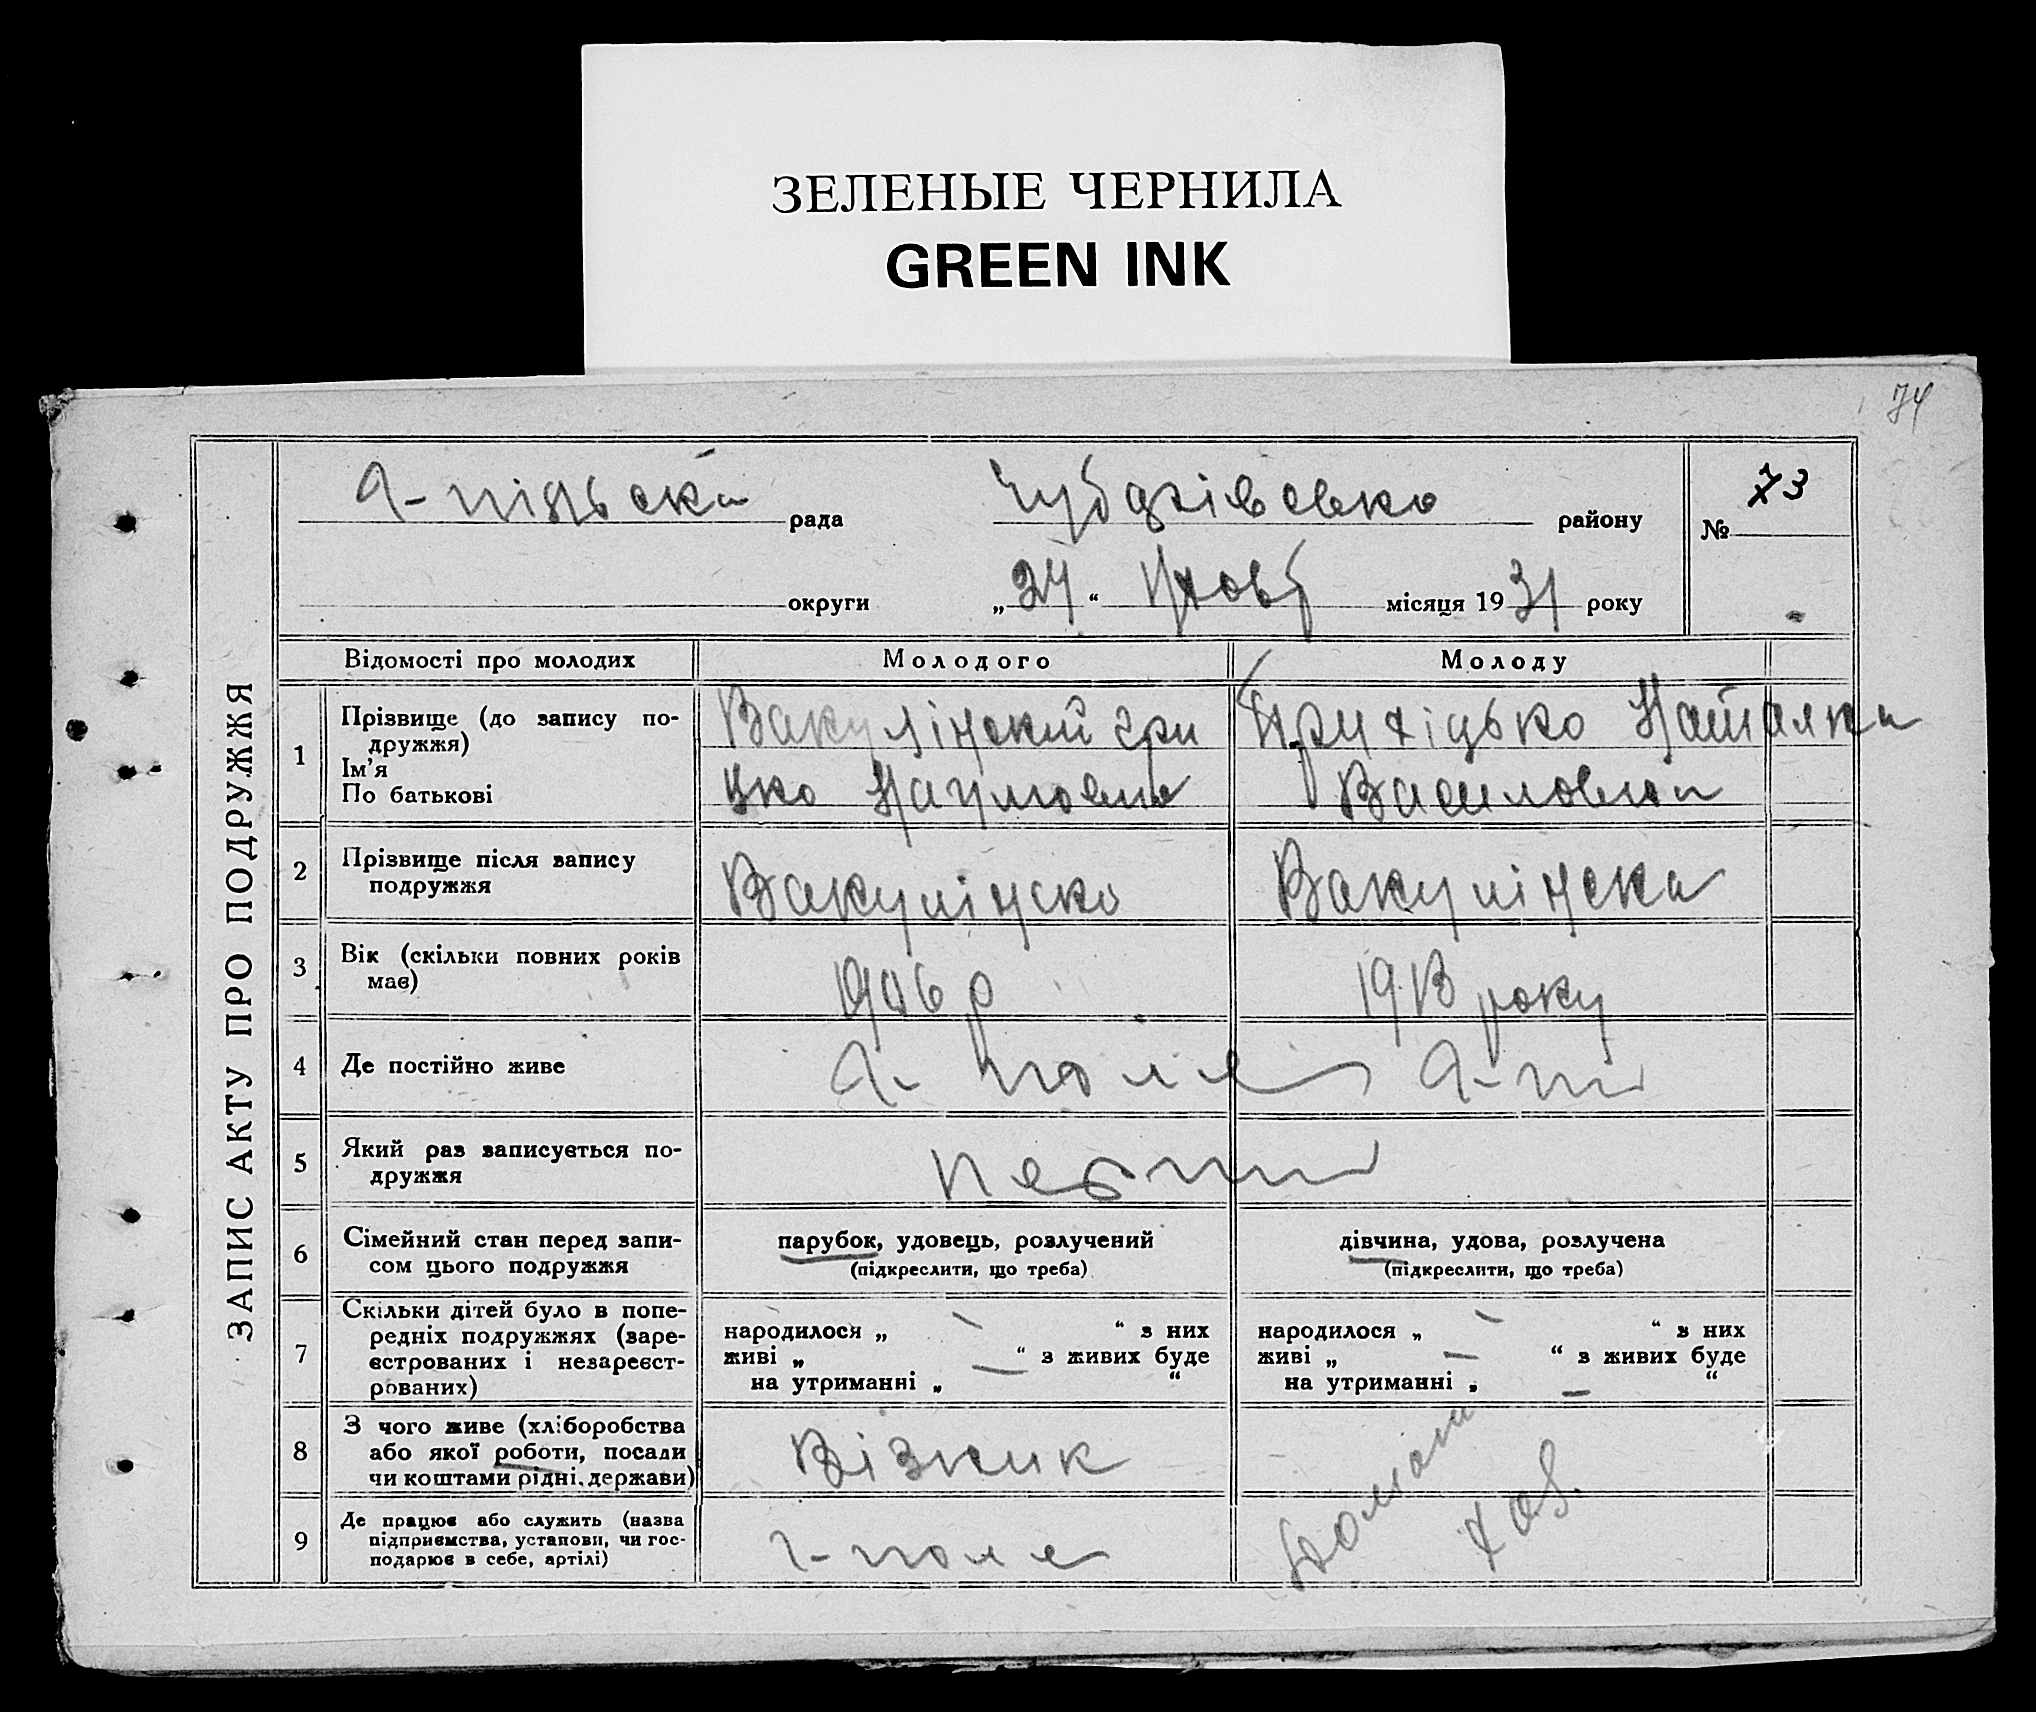 ЗЕЛЕНЫЕ ЧЕРНИЛА
GREEN INK
74
ЗАПИС АКТУ ПРО ПОДРУЖЖЯ
рада
району
№ 73
округи „24“ місяця 1931 року
Відомості про молодих
Молодого
Молоду
1
Прізвище (до запису по-
дружжя)
Ім'я
По батькові
Вакулінский Гри
цко Наумович
Наталка
Василовна
2
Прізвище після запису
подружжя
Вакулінско
Вакулінска
3
Вік (скільки повних років
має)
1906 р
1913 року
4
Де постійно живе
поле
5
Який раз записується по-
дружжя
6
Сімейний стан перед запи-
сом цього подружжя
парубок, удовець, розлучений
(підкреслити, що треба)
дівчина, удова, розлучена
(підкреслити, що треба)
7
Скільки дітей було в попе-
редніх подружжях (заре-
єстрованих і незареєст-
рованих)
народилося „ — “ з них
живі „ — “ з живих буде
на утриманні „ “
народилося „ — “ з них
живі „ — “ з живих буде
на утриманні „ — “
8
З чого живе (хліборобства
або якої роботи, посади
чи коштами рідні, держави)
Візник
9
Де працює або служить (назва
підприємства, установи, чи гос-
подарює в себе, артілі)
г-поле